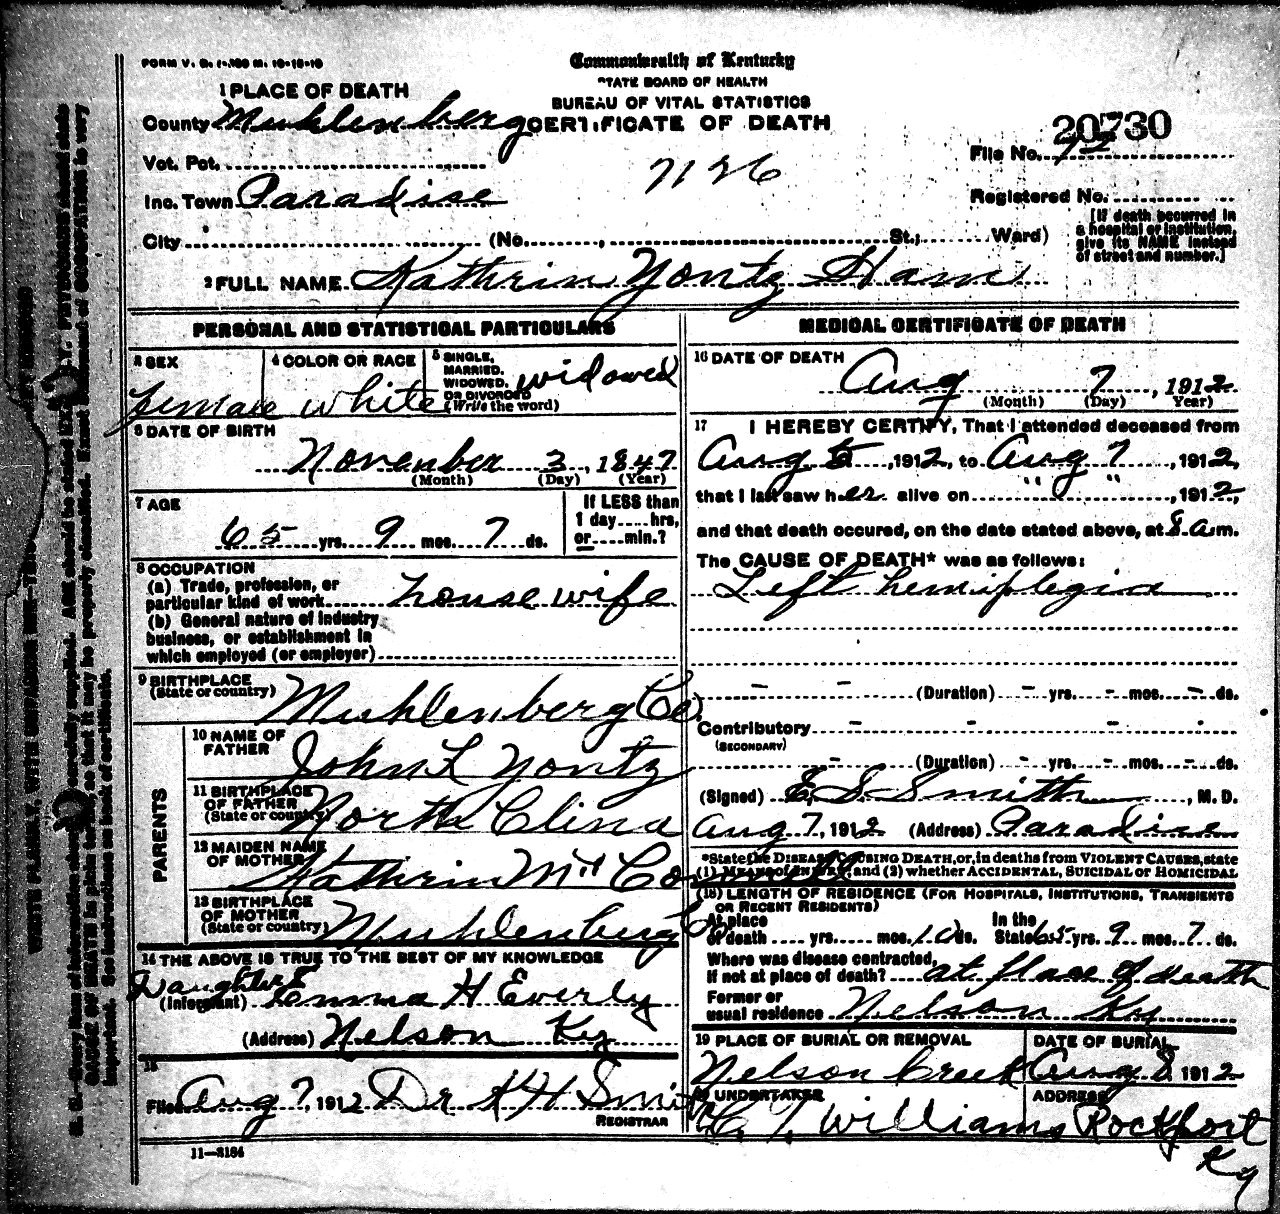 FORM V. S. 1-
Commonwealth of Kentucky
STATE BOARD OF HEALTH
BUREAU OF VITAL STATISTICS
CERTIFICATE OF DEATH
1 PLACE OF DEATH
County Muhlenberg
Vot. Pct.
Inc. Town Paradise
7126
20730
File No.
Registered No.
City (No. , St.; Ward)
[If death occurred in
a hospital or institution,
give its NAME instead
of street and number.]
2 FULL NAME. Kathrin Yontz Ham
PERSONAL AND STATISTICAL PARTICULARS
3 SEX
female
4 COLOR OR RACE
white
5 SINGLE,
MARRIED,
WIDOWED,
OR DIVORCED
(Write the word)
widowed
6 DATE OF BIRTH
November 3, 1847
(Month) (Day) (Year)
7 AGE
65 yrs. 9 mos. 7 ds.
If LESS than
1 day.....hrs,
or.....min.?
8 OCCUPATION
(a) Trade, profession, or
particular kind of work housewife
(b) General nature of industry
business, or establishment in
which employed (or employer)
9 BIRTHPLACE
(State or country)
Muhlenberg Co.
PARENTS
10 NAME OF
FATHER
John L Yontz
11 BIRTHPLACE
OF FATHER
(State or country)
North Clina
12 MAIDEN NAME
OF MOTHER
Kathrin
13 BIRTHPLACE
OF MOTHER
(State or country)
Muhlenberg Co
14 THE ABOVE IS TRUE TO THE BEST OF MY KNOWLEDGE
Daughter
(Informant) Emma H Everly
(Address) Nelson Ky
15
Filed Aug 7, 1912 Dr K H Smith
REGISTRAR
11-3184
MEDICAL CERTIFICATE OF DEATH
16 DATE OF DEATH
Aug 7, 1912
(Month) (Day) (Year)
17 I HEREBY CERTIFY, That I attended deceased from
Aug , 1912, to Aug 7, 1912,
that I last saw her alive on " " , 1912,
and that death occured, on the date stated above, at 8.a.m.
The CAUSE OF DEATH* was as follows:
Left hemiplegia
- - (Duration) - yrs. - mos. - ds.
Contributory - - - -
(SECONDARY)
(Duration) - yrs. - mos. - ds.
(Signed) E. S. Smith, M. D.
Aug 7, 1912 (Address) Paradise
*State the DISEASE CAUSING DEATH, or, in deaths from VIOLENT CAUSES, state
(1) MEANS OF INJURY; and (2) whether ACCIDENTAL, SUICIDAL or HOMICIDAL
(18) LENGTH OF RESIDENCE (FOR HOSPITALS, INSTITUTIONS, TRANSIENTS
OR RECENT RESIDENTS)
At place
of death .... yrs. .... mos. 10 ds.
In the
State 65 yrs. 9 mos. 7 ds.
Where was disease contracted,
If not at place of death? at place of death
Former or
usual residence Nelson Ky
19 PLACE OF BURIAL OR REMOVAL
Nelson Creek
DATE OF BURIAL
Aug 8, 1912
20 UNDERTAKER
C. T. Williams
ADDRESS
Rockport
Ky